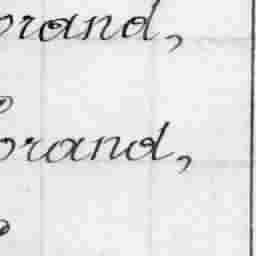 orand,
orand,